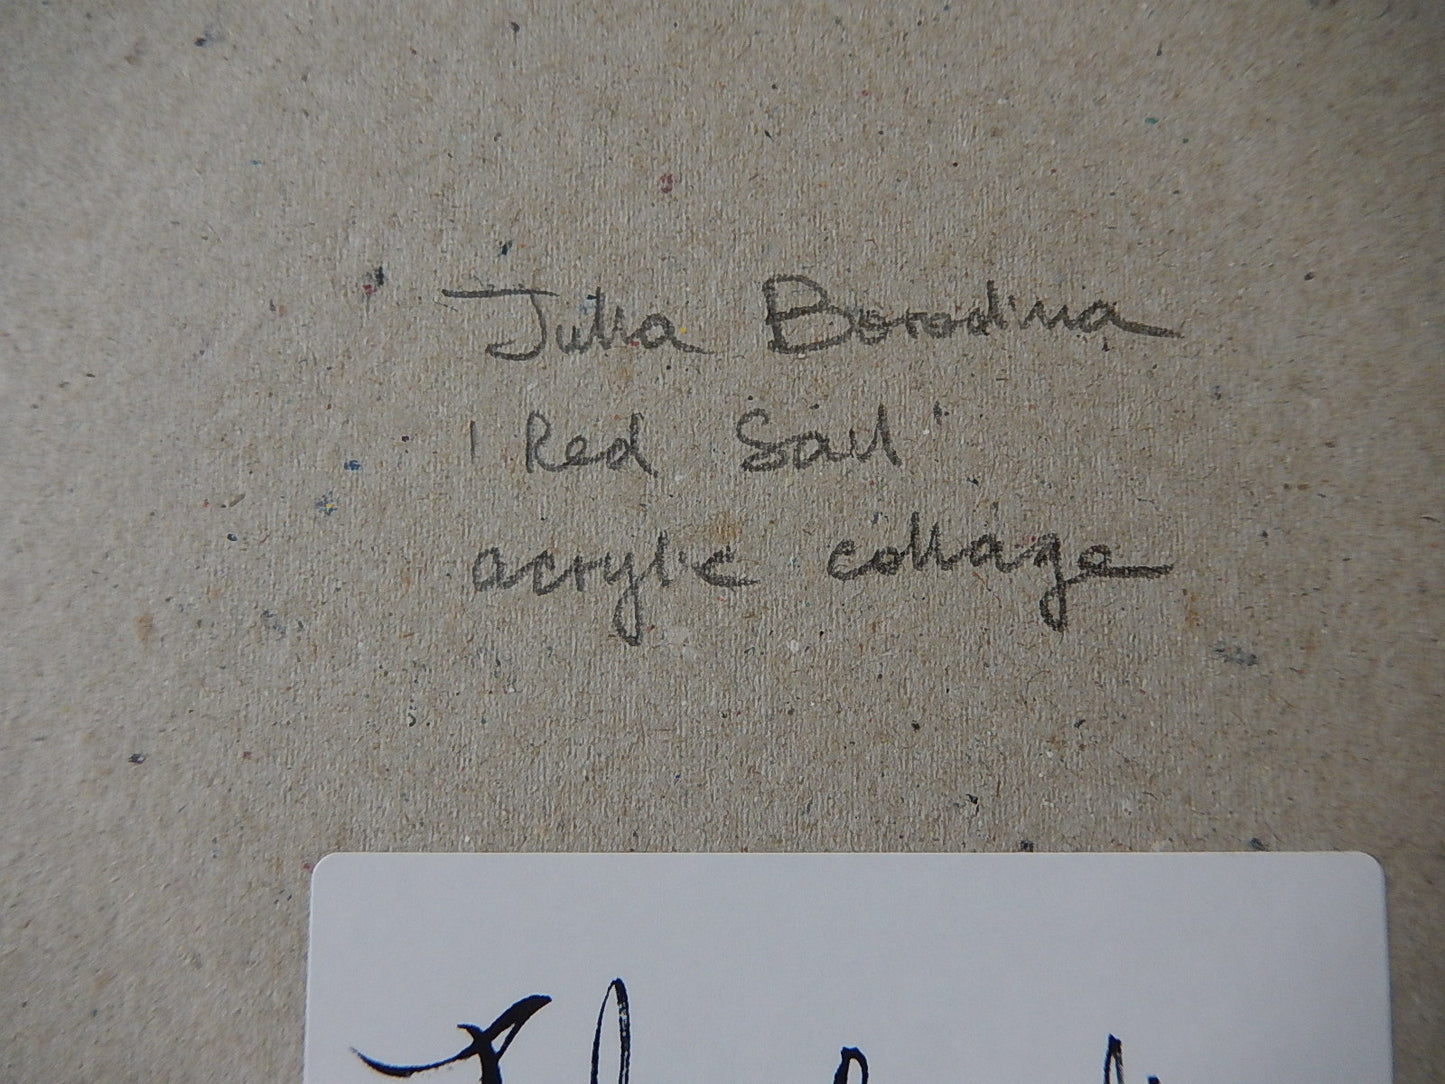 Julia Borodina
'Red Sail'
acrylic collage